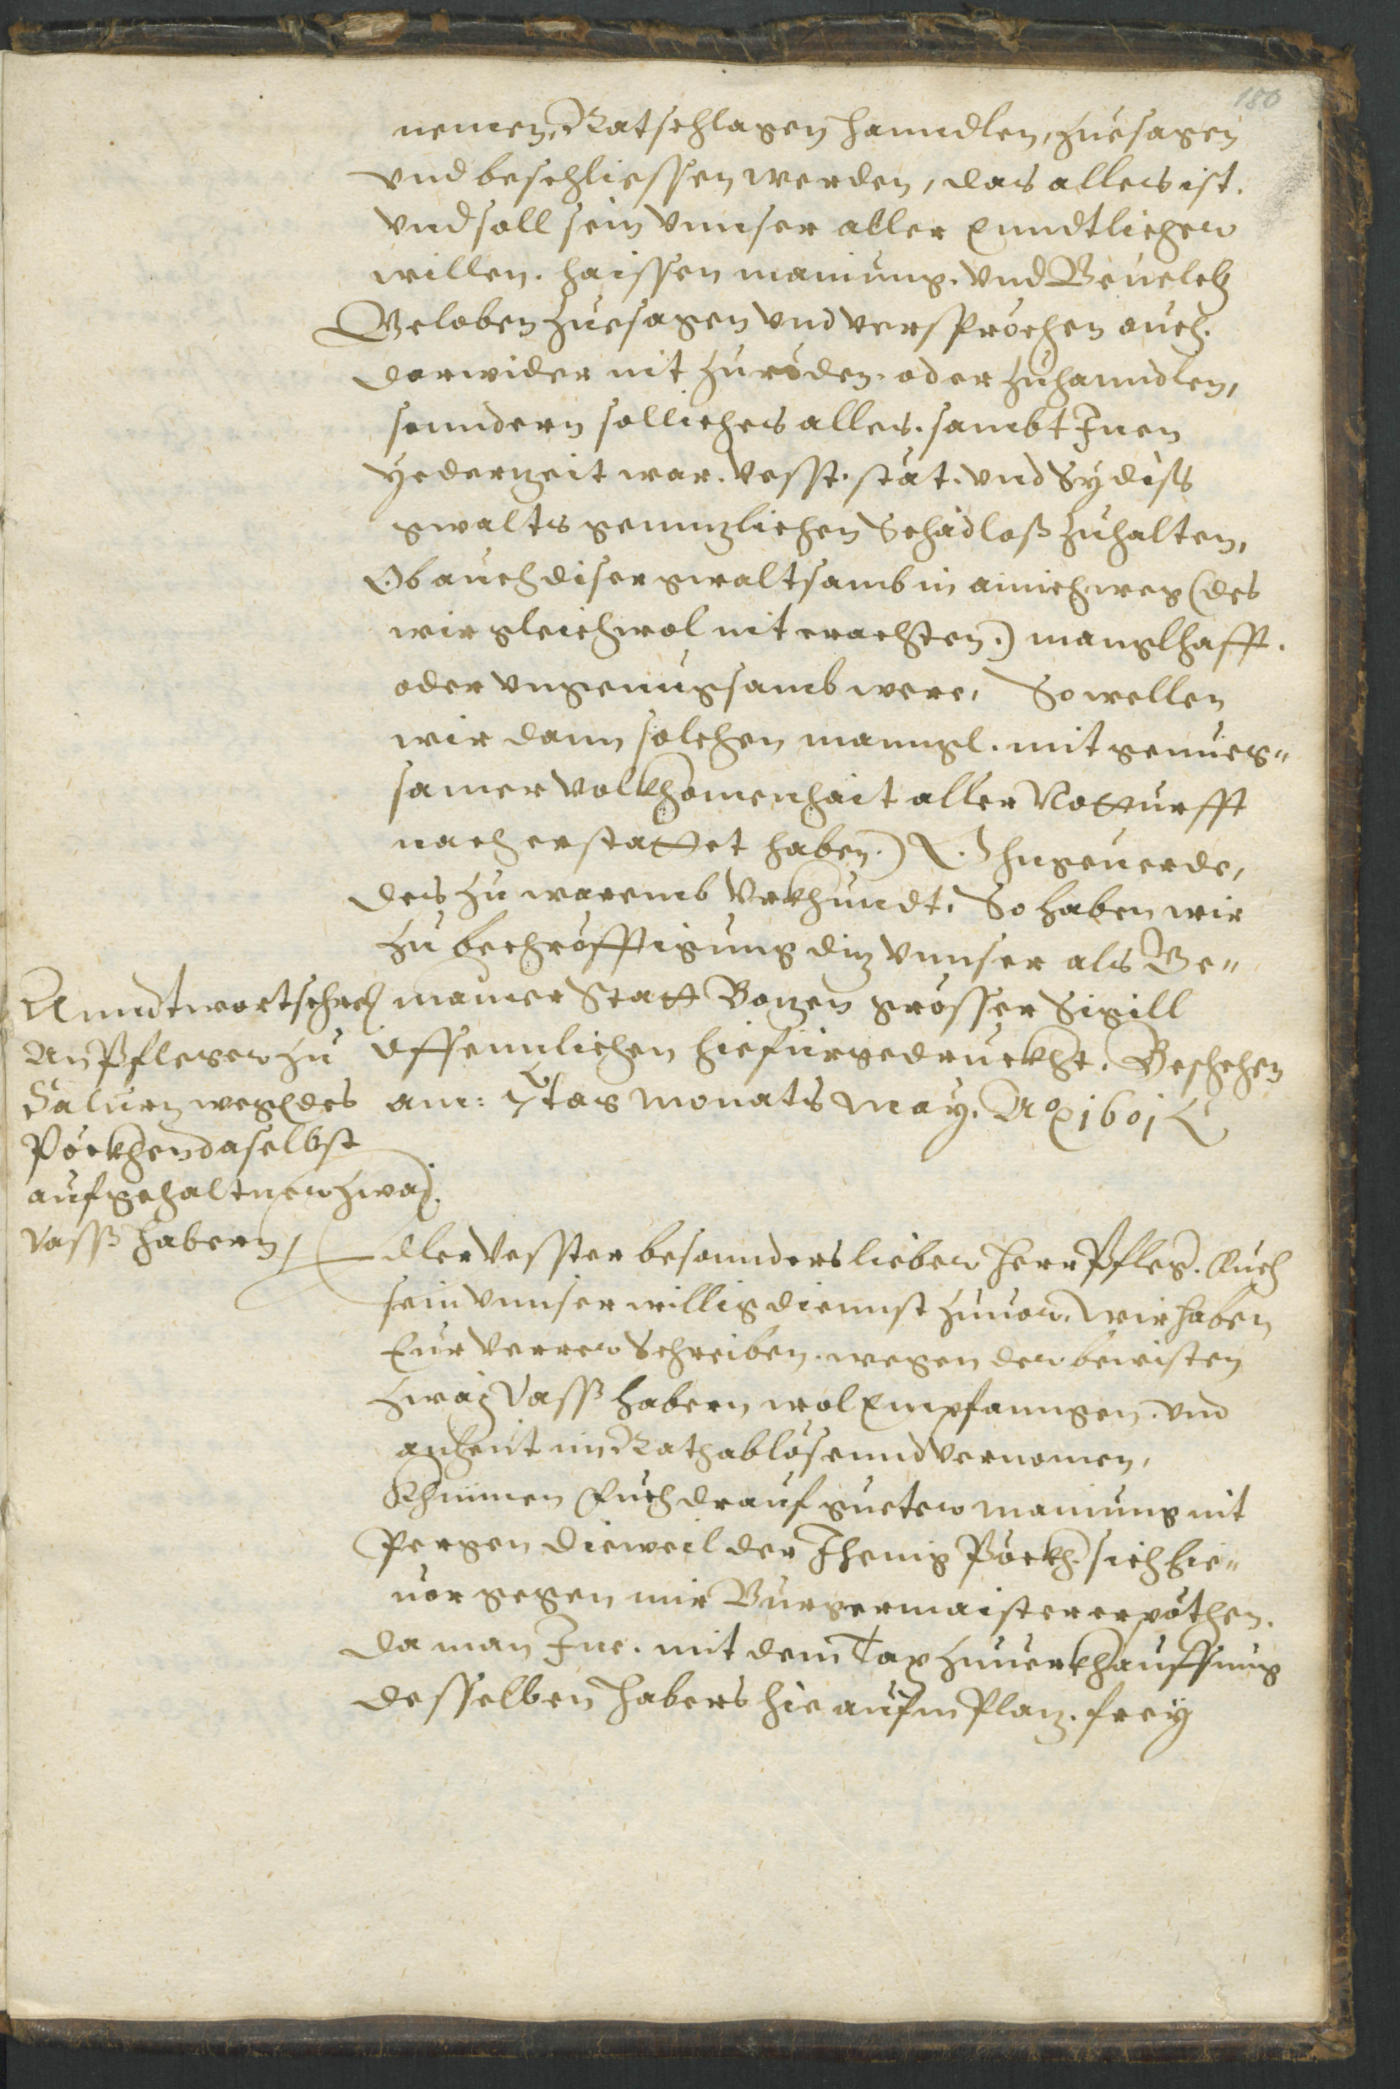 180
nemen, Ratschlagen hanndlen, zuesagen
vnd beschliessen werden, das alles ist.
vnd soll sein vnnser aller enndtlicher
willen. haissen mainung. vnd Beuelch
Geloben zuesagen vnd versprechen auch.
darwider nit zureden. oder zuhanndlen,
sonndern solliches alles. sambt Inen
yederzeit war. vesst. stät. vnd Sy diss
gwalts genntzlichen Schadloß zuhalten,
Ob auch diser gwaltsamb in ainich weg (des
wir gleichwol nit erachten.) manglhafft.
oder vngenuegsamb were, So wellen
wir dann solchen manngl. mit genueg"
samer volkhomenhait aller Notturfft
nach erstattet haben.) Ongeuerde,
des zu warem Vrkhundt, So haben wir
zu bechröfftigung ditz vnnser als Ge"
mainer Statt Botzen grosser Sigill
offennlichen hiefürgedruckht. Beschehen
am: 7 tag monats May. Ao 1601
Anndtwortschreib
An Pfleger zu
Salurn wegen des
Pöckhen daselbst
aufgehaltner zway
Vass habern,
Edler Vesster besonnders lieber herr Pfleg. Euch
sein vnnser willig diennst zuuor. Wir haben
Eur verrer Schreiben. wegen der bewisten
zway Vass habern wol Empfanngen. vnd
anheut im Rath ablösennd vernomen,
Khünnen Euch drauf gueter mainung nit
Pergen dieweil der Jhenig Pöckh. sich hie"
uor gegen mir Burgermaister erpöthen.
da man Ine. mit dem Tax zuuerkhauffung
desselben habers hie aufm Platz. frey